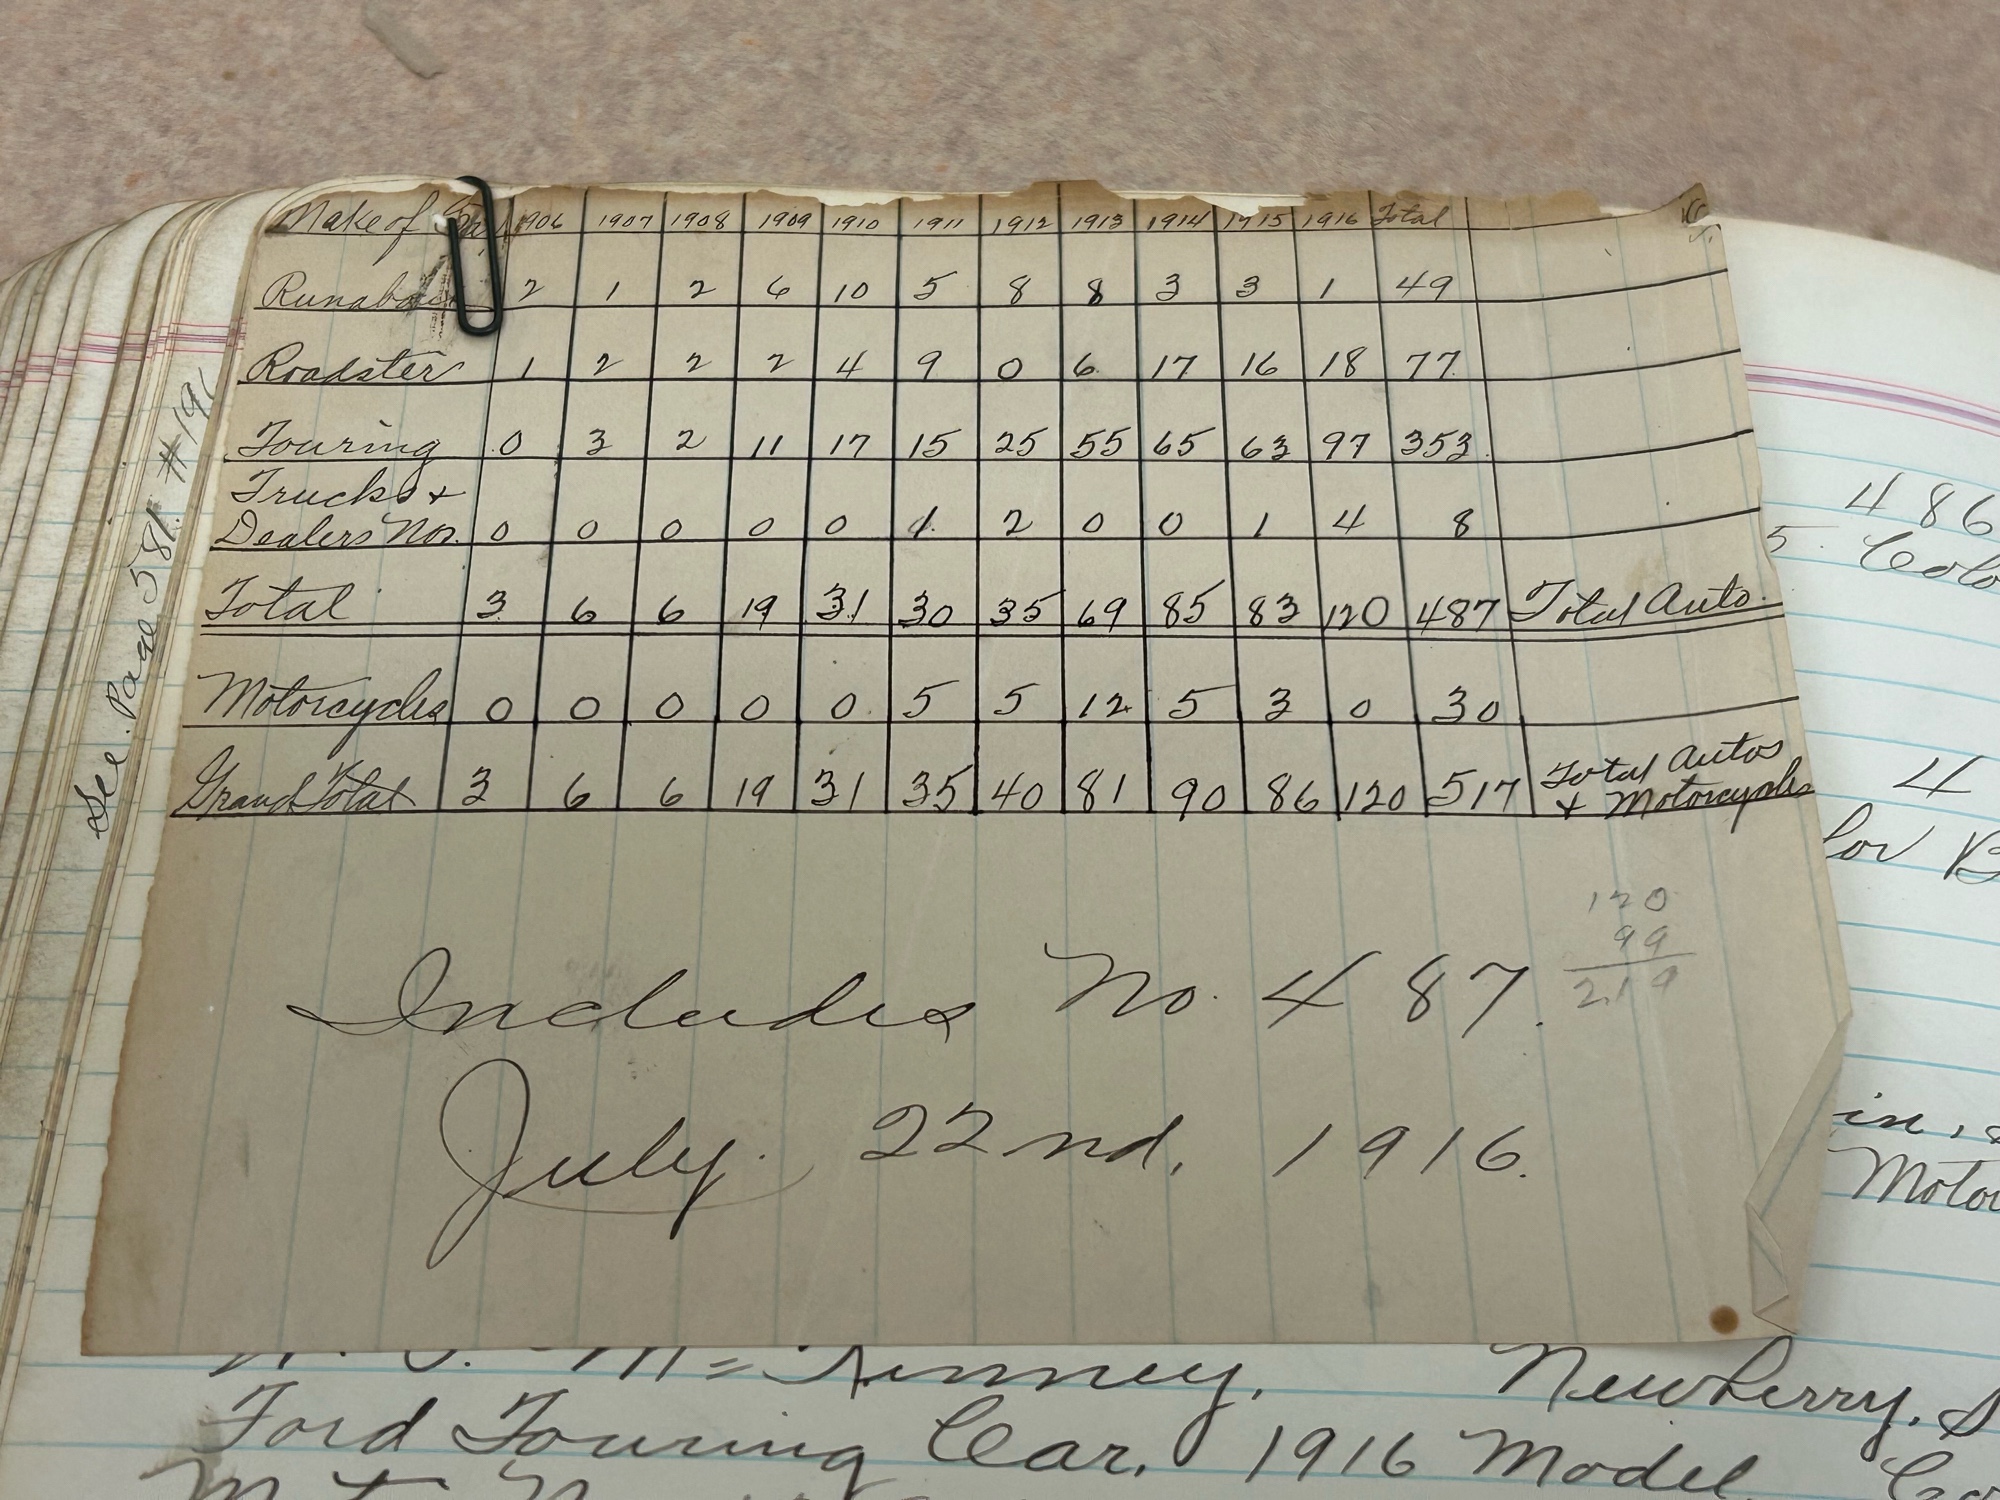 Make of 1906 1907 1908 1909 1910 1911 1912 1913 1914 1915 1916 Total
Runabout 2 1 2 6 10 5 8 8 3 3 1 49
Roadster 1 2 2 2 4 9 0 6 17 16 18 77
Touring 0 3 2 11 17 15 25 55 65 63 97 353
Trucks +
Dealers Nos. 0 0 0 0 0 1 2 0 0 1 4 8
Total 3 6 6 19 31 30 35 69 85 83 120 487 Total Auto.
Motorcycles 0 0 0 0 0 5 5 12 5 3 0 30
Grand Total 3 6 6 19 31 35 40 81 90 86 120 517 Total Autos
+ Motorcycles
120
99
219
Includes No. 487.
July 22nd, 1916.
See Page 581. #191
486
5. Colo
4
lor B
in, &
Motor
McKinney, Newberry, S
Ford Touring Car, 1916 Model